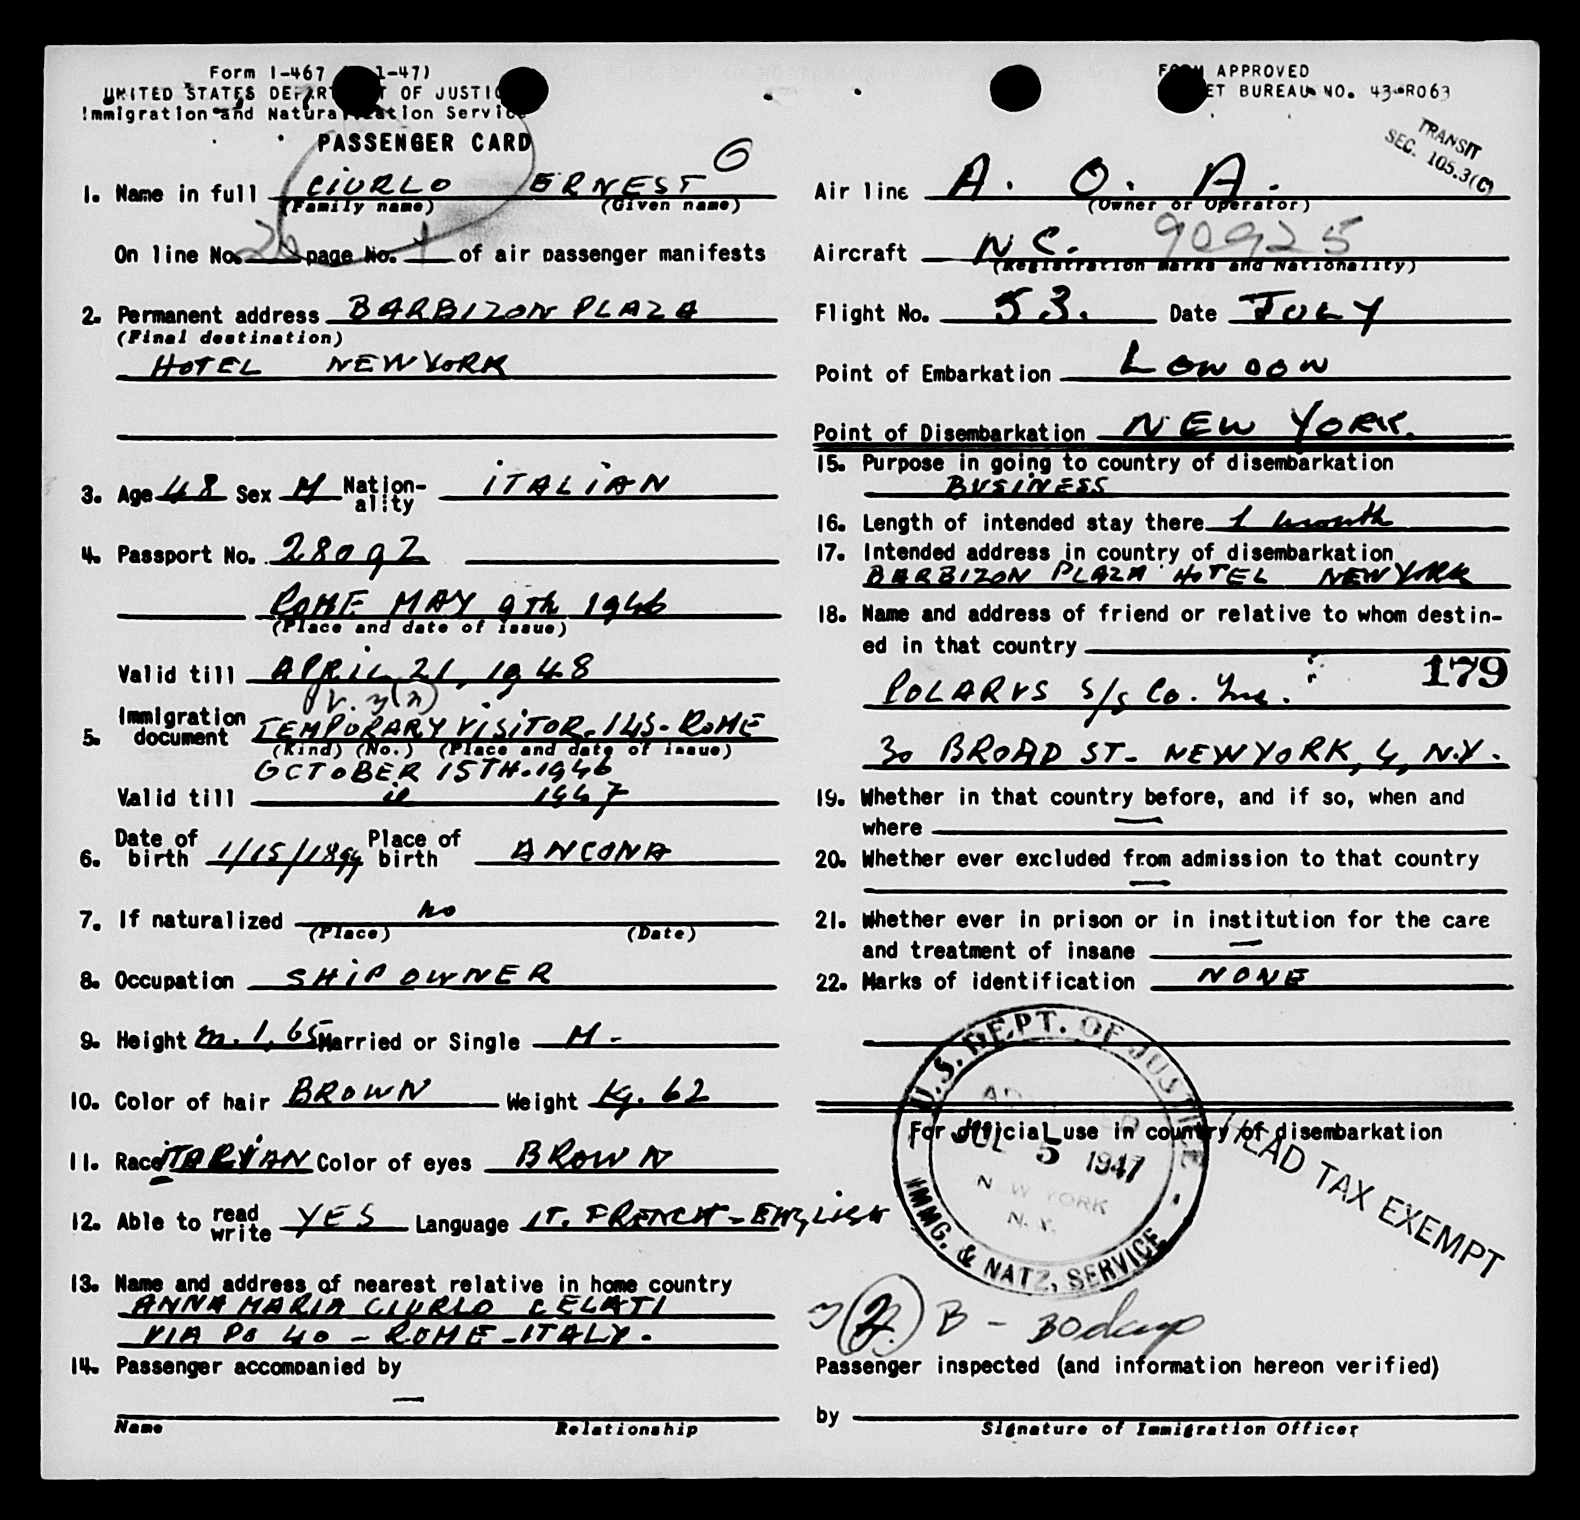 Form I-467 1-47)
UNITED STATES DEPARTMENT OF JUSTICE
Immigration and Naturalization Service
PASSENGER CARD
1. Name in full CIURLO ERNEST
(Family name) (Given name)
On line No. 26 page No. 1 of air passenger manifests
2. Permanent address BARBIZON PLAZA
(Final destination)
HOTEL NEW YORK
3. Age 48 Sex M Nation-ality ITALIAN
4. Passport No. 28092
ROME MAY 9th 1946
(Place and date of issue)
Valid till APRIL 21, 1948
5. Immigration document TEMPORARY VISITOR. 145 - ROME
(Kind) (No.) (Place and date of issue)
OCTOBER 15TH. 1946
Valid till 1947
6. Date of birth 1/15/1899 Place of birth ANCONA
7. If naturalized no
(Place) (Date)
8. Occupation SHIPOWNER
9. Height m. 1,65 Married or Single M -
10. Color of hair BROWN Weight Kg. 62
11. Race ITALIAN Color of eyes BROWN
12. Able to read write YES Language IT. FRENCH - ENGLISH
13. Name and address of nearest relative in home country
ANNA MARIA CIURLO CELATI
VIA PO 40 - ROME - ITALY.
14. Passenger accompanied by
—
Name Relationship
FORM APPROVED
BUDGET BUREAU NO. 43-R063
TRANSIT
SEC. 105.3(C)
Air line A. O. A.
(Owner or Operator)
Aircraft NC. 90925
(Registration marks and Nationality)
Flight No. 53. Date JULY
Point of Embarkation LONDON
Point of Disembarkation NEW YORK.
15. Purpose in going to country of disembarkation
BUSINESS
16. Length of intended stay there 1 month
17. Intended address in country of disembarkation
BARBIZON PLAZA HOTEL NEW YORK
18. Name and address of friend or relative to whom destin-
ed in that country
179
POLARUS S/S Co. Inc.
30 BROAD ST - NEW YORK, 4, N.Y.
19. Whether in that country before, and if so, when and
where —
20. Whether ever excluded from admission to that country
—
21. Whether ever in prison or in institution for the care
and treatment of insane —
22. Marks of identification NONE
For official use in country of disembarkation
U.S. DEPT. OF JUSTICE
ADMITTED
JUL 5 1947
NEW YORK
N. Y.
IMMG. & NATZ. SERVICE
HEAD TAX EXEMPT
3(2) B -
Passenger inspected (and information hereon verified)
by
Signature of Immigration Officer